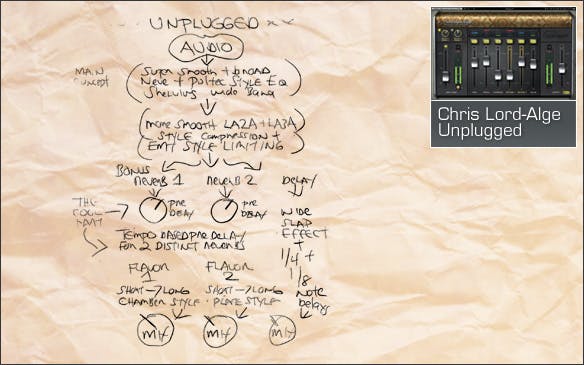 UNPLUGGED
AUDIO
MAIN
CONCEPT
Super Smooth + broad
Neve + Pultec STYLE EQ
Shelving wide band
more smooth LA2A + LA3A
STYLE Compression +
EMT STYLE LIMITING
Bonus
Reverb 1
Reverb 2
DELAY
THE
COOL
PART
PRE
DELAY
PRE
DELAY
WIDE
SLAP
EFFECT
+
1/4 +
1/8
NOTE
delays
TEMPO BASED PRE DELAY
FOR 2 DISTINCT REVERBS
FLAVOR
1
SHORT → LONG
CHAMBER STYLE
FLAVOR
2
SHORT → LONG
PLATE STYLE
Chris Lord-Alge
Unplugged